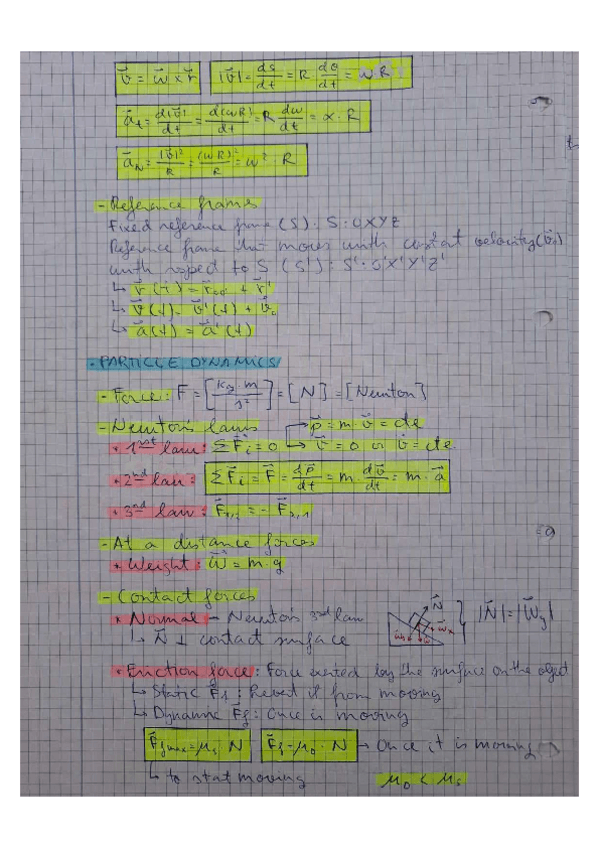 v⃗ = w⃗ × r⃗   |v⃗| = ds/dt = R dθ/dt = w R
a⃗t = d|v⃗|/dt = d(wR)/dt = R dw/dt = α · R
a⃗N = |v⃗|²/R = (wR)²/R = w² · R
- Reference frames
Fixed reference frame (S): S: OXYZ
Reference frame that moves with constat velocity (v⃗o)
with roped to S (S'): S': O'X'Y'Z'
↳ r⃗(t) = r⃗oo' + r⃗'
↳ v⃗(t) = v⃗'(t) + v⃗o
↳ a⃗(t) = a⃗'(t)
· PARTICLE DYNAMICS
- Force: F = [kg · m / s²] = [N] = [Newton]
- Newton's laws   p⃗ = m · v⃗ = cte
* 1st law: ΣF⃗i = 0 ↳ v⃗ = 0 or v⃗ = cte.
* 2nd law: ΣF⃗i = F⃗ = dp⃗/dt = m · dv⃗/dt = m · a⃗
* 3rd law: F⃗1,2 = - F⃗2,1
- At a distance forces
* Weight: w⃗ = m · g
- Contact forces
* Normal - Newton's 3rd law   N⃗   w⃗x   |N⃗| = |W⃗y|
↳ N⃗ ⊥ contact surface
* Friction force: Force exerted by the surface on the object
↳ Static F⃗f: it from moving
↳ Dynamic F⃗f: Once is moving
F⃗fmax = μs · N   F⃗f = μD · N → Once it is moving
↳ to stat moving   μD < μs